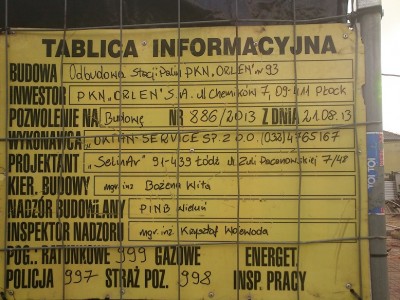 TABLICA INFORMACYJNA
BUDOWA Odbudowa Stacji Paliw PKN „ORLEN" nr 93
INWESTOR PKN „ORLEN" S.A. ul Chemików 7, 09-411 Płock
POZWOLENIE NA Budowę NR 886/2013 Z DNIA 21.08.13
WYKONAWCA SERVICE SP. Z O.O. (032) 4765167
PROJEKTANT „SelinAr" 91-439 Łódź ul Zuli Pacanowskiej 7/48
KIER. BUDOWY mgr inż Bożena Wita
NADZÓR BUDOWLANY PINB Wieluń
INSPEKTOR NADZORU mgr. inż Krzysztof Wojewoda
POG. RATUNKOWE 999 GAZOWE ENERGET.
POLICJA 997 STRAŻ POŻ. 998 INSP. PRACY